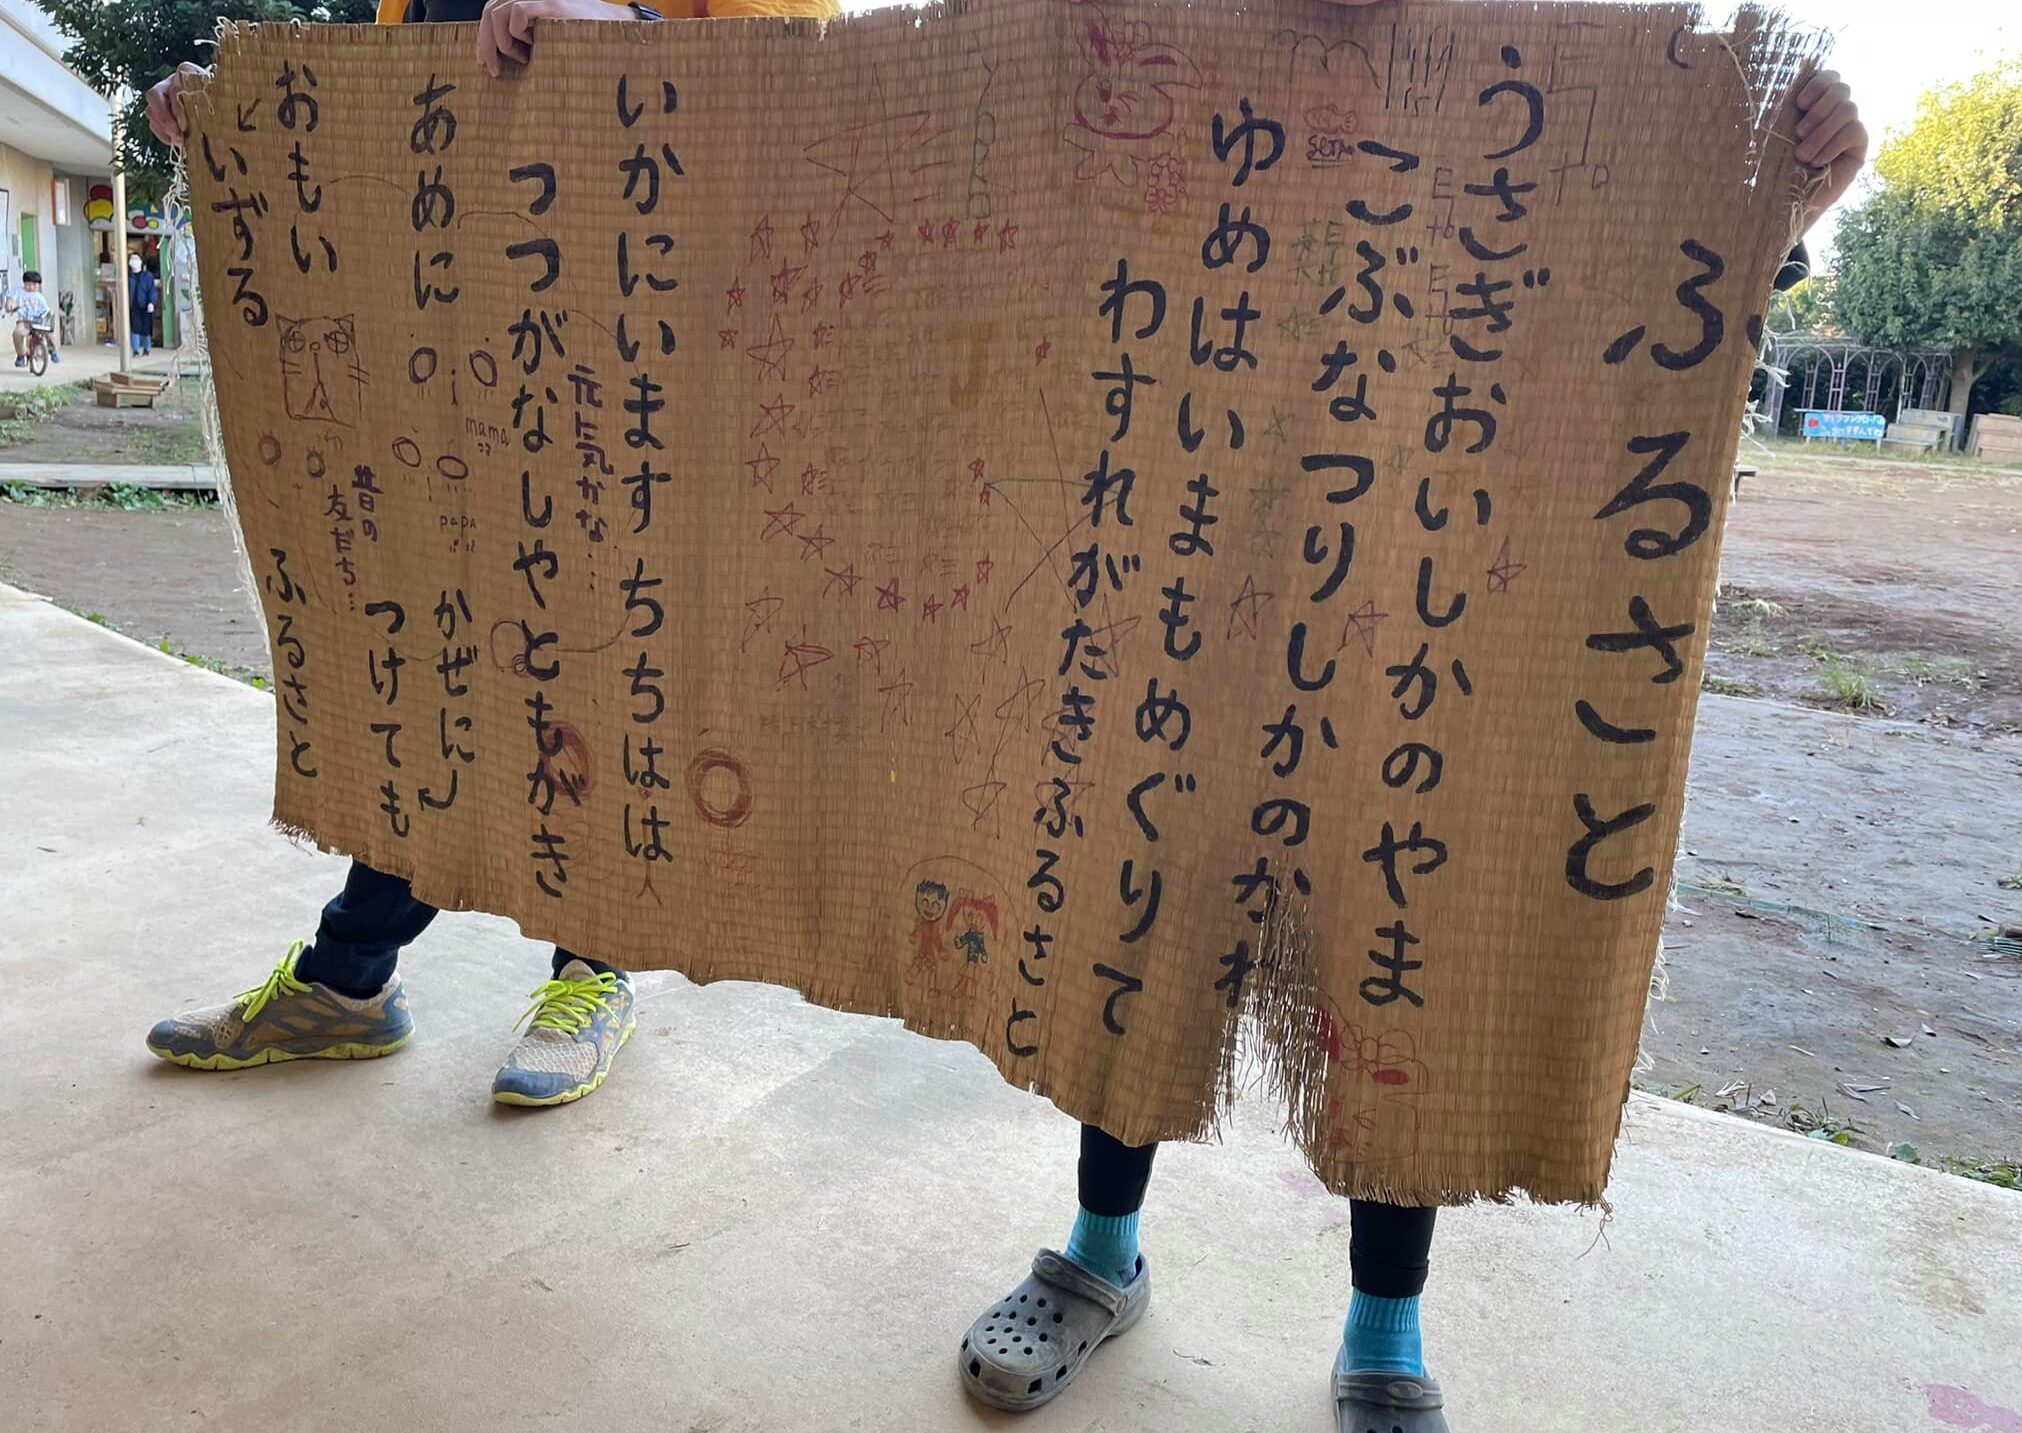 ふるさと
うさぎおいしかのやま
こぶなつりしかのかわ
ゆめはいまもめぐりて
わすれがたきふるさと
いかにいますちちはは
元気かな…
つつがなしやともがき
あめに かぜに
つけても
昔の
友だち…
おもい
いずる ふるさと
mama
papa